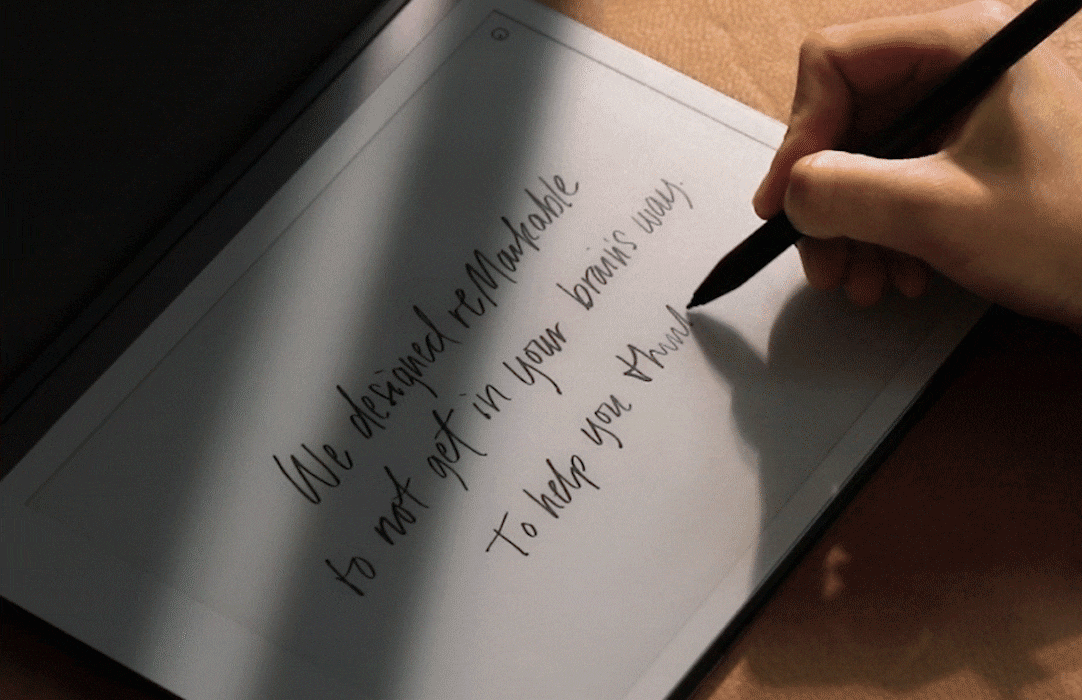 We designed reMarkable
to not get in your brain's way.
To help you think